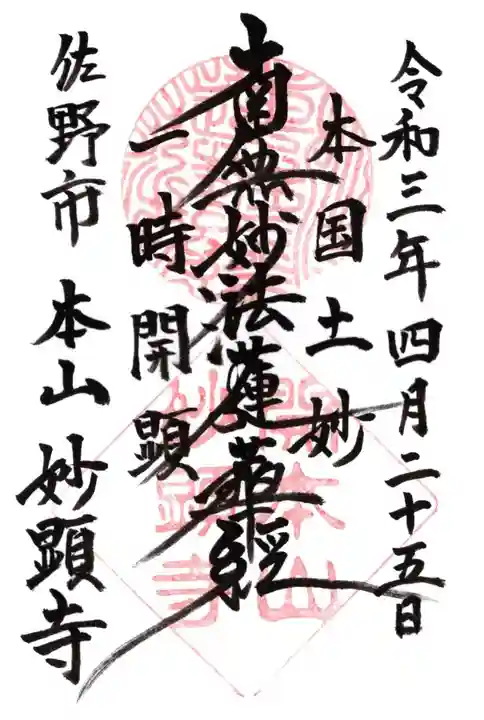 令和三年四月二十五日
本国土妙
南無妙法蓮華経
一時開顕
佐野市 本山 妙顕寺
本山
妙顕寺